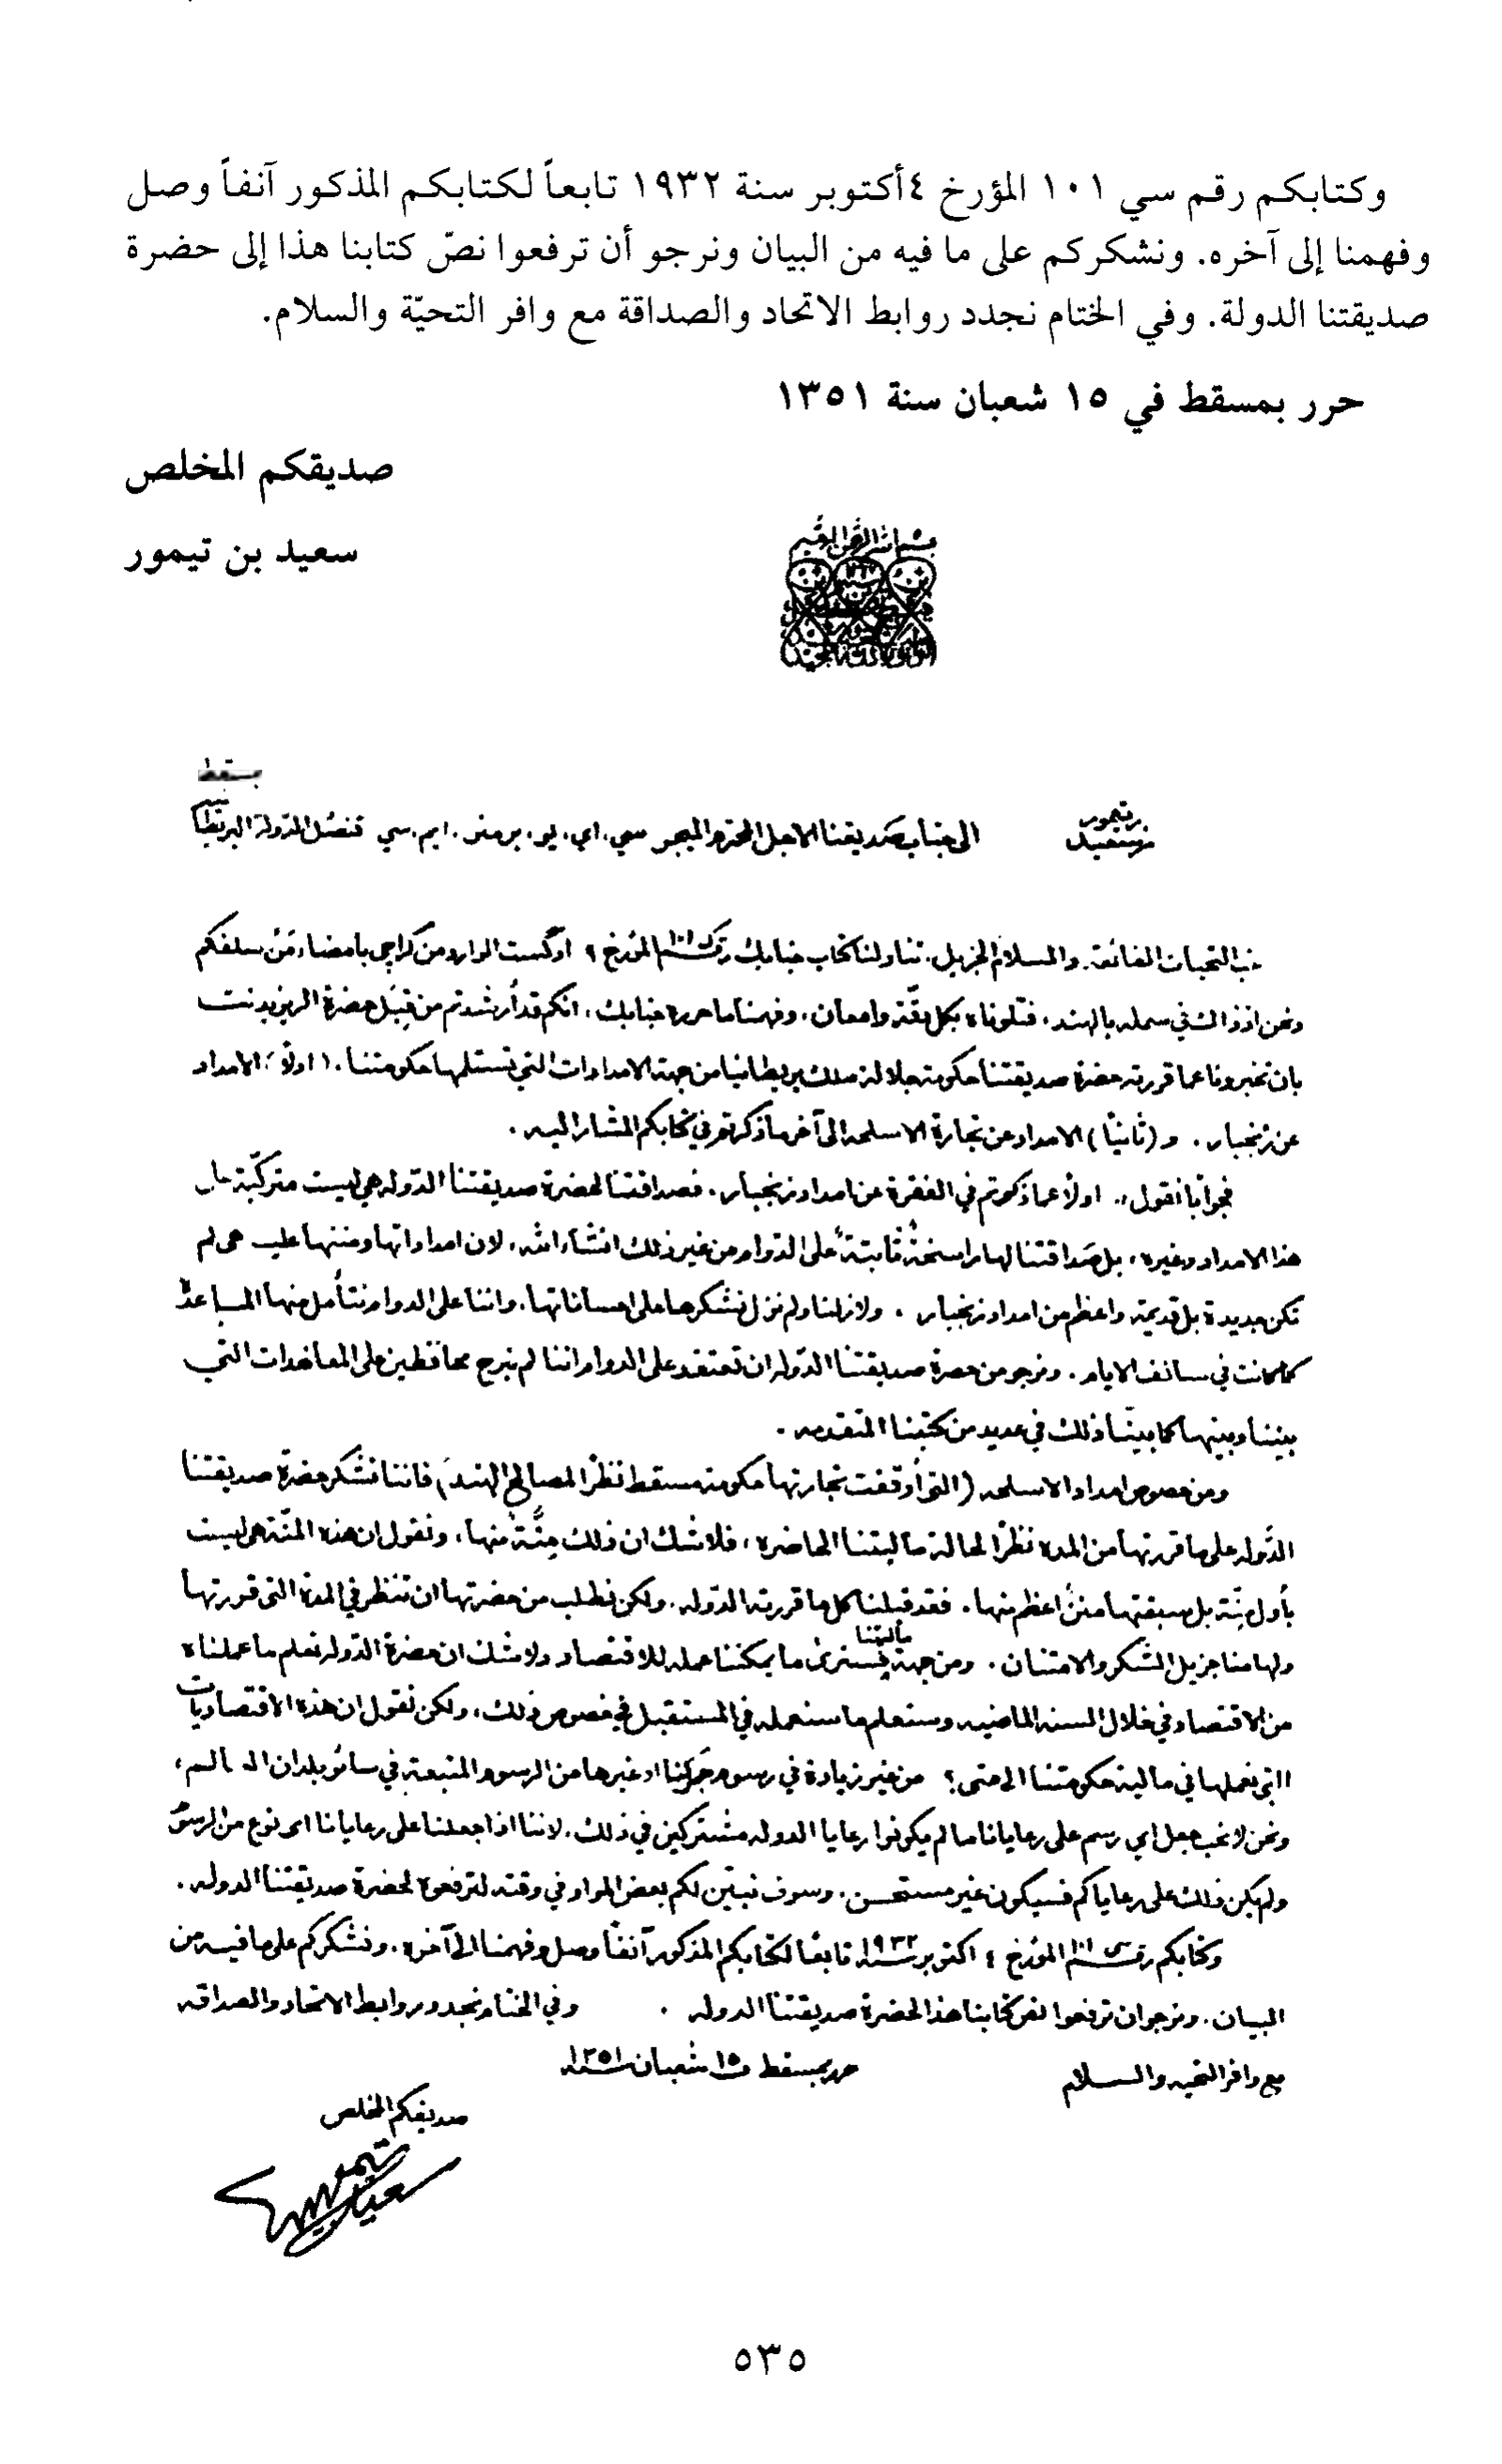 وكتابكم رقم سي ١٠١ المؤرخ ٤أكتوبر سنة ١٩٣٢ تابعاً لكتابكم المذكور آنفاً وصل
وفهمنا إلى آخره. ونشكركم على ما فيه من البيان ونرجو أن ترفعوا نصّ كتابنا هذا إلى حضرة
صديقتنا الدولة. وفي الختام نجدد روابط الاتحاد والصداقة مع وافر التحيّة والسلام.
حرر بمسقط في ١٥ شعبان سنة ١٣٥١
صديقكم المخلص
سعيد بن تيمور
بمسقط
الى جناب صديقنا الاجل المحترم الميجر سي. اي. يو. بريمنر. ايم. سي قنصل الدولة البريطا
غب التحيات الفائقة. والسلام الجزيل. تناولنا كتاب جنابك رقم ١٠١ المؤرخ ٩ اوگست الوارد من كراچي بامضاء من سلفكم
ونحن اذ ذاك في سمله بالهند، فتلوناه بكل دقّة وامعان، وفهمنا ما حرره جنابك، انكم قد أُرشدتم من قِبَل حضرة الريزيدنت
بان تخبرونا عما قررته حضرة صديقتنا حكومة جلالة ملك بريطانيا من جهة الامدادات التي تستلمها حكومتنا. (اولاً) الامداد
عن زنجبار. و (ثانيًا) الامداد عن تجارة الاسلحه الى آخر ما ذكرتم في كتابكم المشار اليه.
فجوابًا نقول،، اولاً عما ذكرتم في الفقرة عن امداد زنجبار. فصداقتنا لحضرة صديقتنا الدوله هي ليست متركّبة على
هذا الامداد وغيره، بل صداقتنا لها راسخةٌ ثابتةٌ على الدوام من غير ذلك انشاء الله، لان امداداتها ومننها علينا هى لم
تكن جديدة بل قديمة واعظم من امداد زنجبار. ولا زلنا ولم نزل نشكرها على احساناتها. واننا على الدوام نتأمل منها المساعدة
كما كانت في سالف الايام. ونرجو من حضرة صديقتنا الدوله ان تعتقد على الدوام اننا لم نبرح محافظين على المعاهدات التي
بيننا وبينها كما بيّنا ذلك في عديد من كتبنا المتقدمه.
ومن خصوص امداد الاسلحه (التى أوقفت تجارتها حكومة مسقط نظرًا لمصالح الهند) فاننا نشكر حضرة صديقتنا
الدوله على ما قررتها من المده نظرًا لحالة ماليتنا الحاضره، فلا شك ان ذلك مِنّةٌ منها. ونقول ان هذه المنّة هى ليست
بأول مِنّة بل سبقتها مننٌ اعظم منها. فقد قبلنا كل ما قررته الدوله. ولكن نطلب من حضرتها ان تنظر في المدة التى قررتها
ولها منا جزيل الشكر والامتنان. ومن جهة ماليتنا فسنرى ما يمكننا عمله للاقتصاد ولا شك ان حضرة الدوله تعلم ما عملناه
من الاقتصاد في خلال السنه الماضيه وستعلم ما سنعمله في المستقبل في خصوص ذلك، ولكن نقول ان هذه الاقتصاديات
التي نعملها في مالية حكومتنا الى متى؟ من غير زيادة في رسوم جَمركنا او غيرها من الرسوم المتبعة في سائر بلدان العالم،
ونحن لا نحب جعل اي رسم على رعايانا ما لم يكونوا رعايا الدوله مشتركين في ذلك. لاننا اذا جعلنا على رعايانا اى نوع من الرسوم
ولم يكن ذلك على رعاياكم فسيكون غير مستحسن. وسوف نبيّن لكم بعض المواد في وقته لترفعوه لحضرة صديقتنا الدوله.
وكتابكم رقم سي ١٠١ المؤرخ ٤ اكتوبر سنة ١٩٣٢ تابعًا لكتابكم المذكور آنفًا وصل وفهمنا الى آخره. ونشكركم على ما فيه من
البيان. ونرجو ان ترفعوا نص كتابنا هذا لحضرة صديقتنا الدوله. وفي الختام نجدد روابط الاتحاد والصداقه
مع وافر التحيه والسلام حرر بمسقط في ١٥ شعبان سنة ١٣٥١
صديقكم المخلص
سعيد بن تيمور
٥٣٥